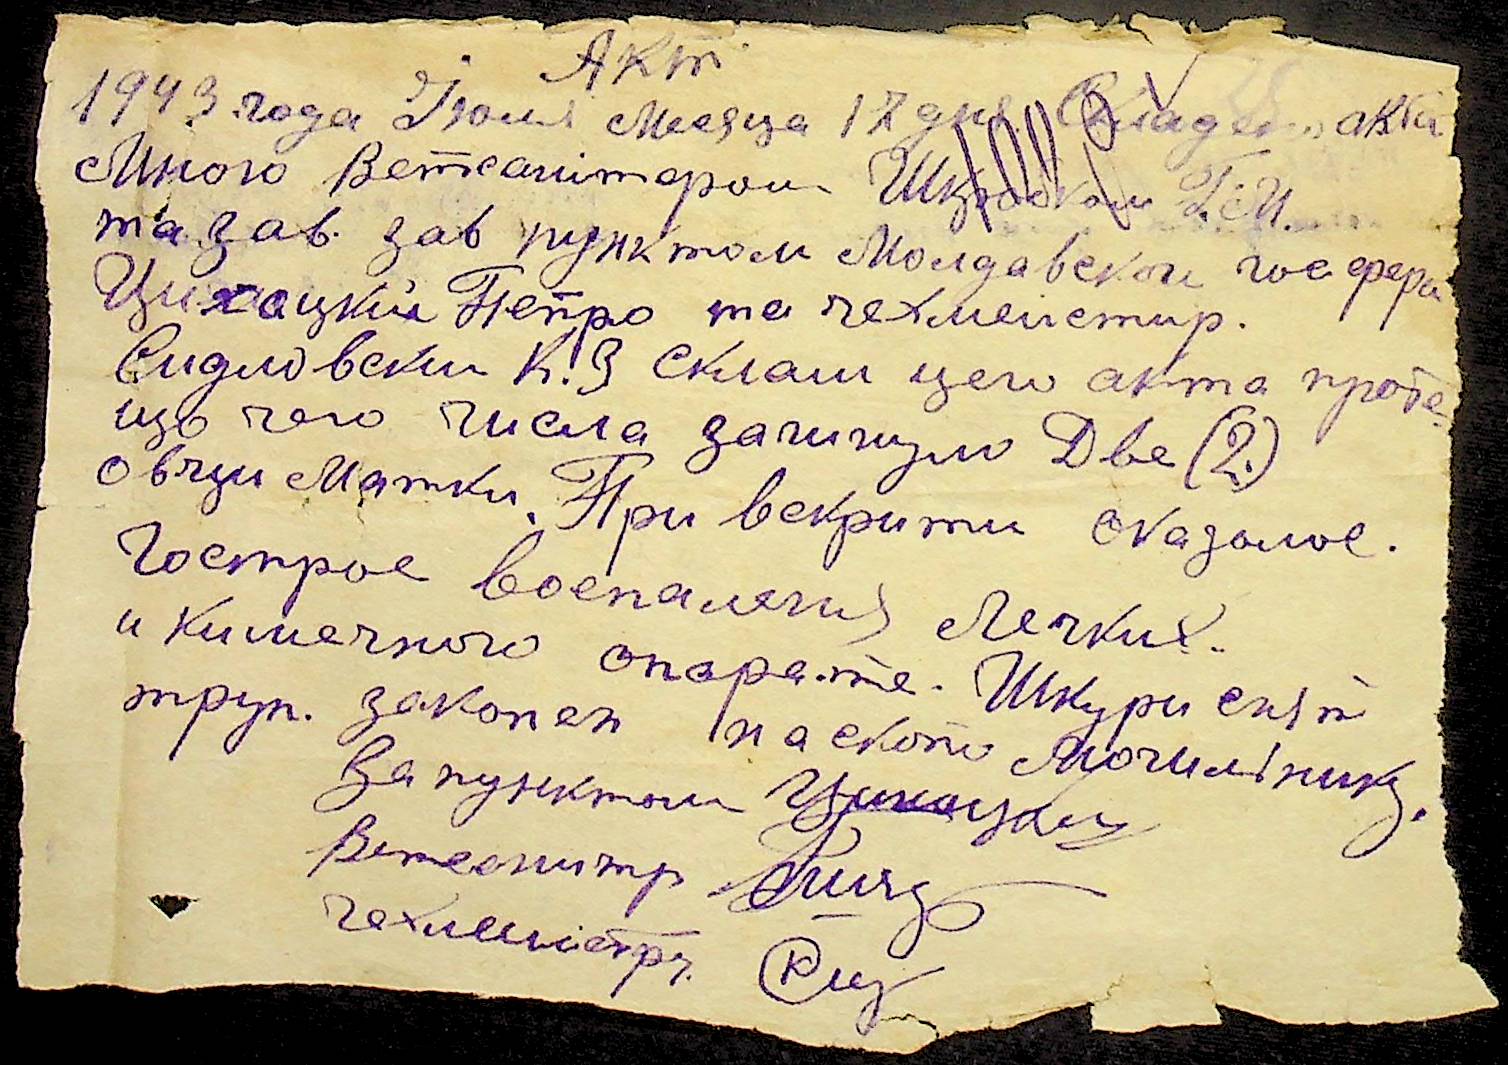 Акт
1943 года Июля Месяца 17 дня Складен акта
Мною Ветсанітером Г. И.
та зав. зав пунктом Молдавскои госферм
Цихоцкий Петро та чехмейстир.
Сидловский К.З склали цего акта проте
що чего числа загинуло Две (2.)
овци Матки. При вскрити оказалос.
Гострое воспаления Легких.
и Кишечного опарате. Шкури снят
труп. закопен на ското Могильнику.
За пунктом Цихоцкий
Ветсонитр
чехмейстр.